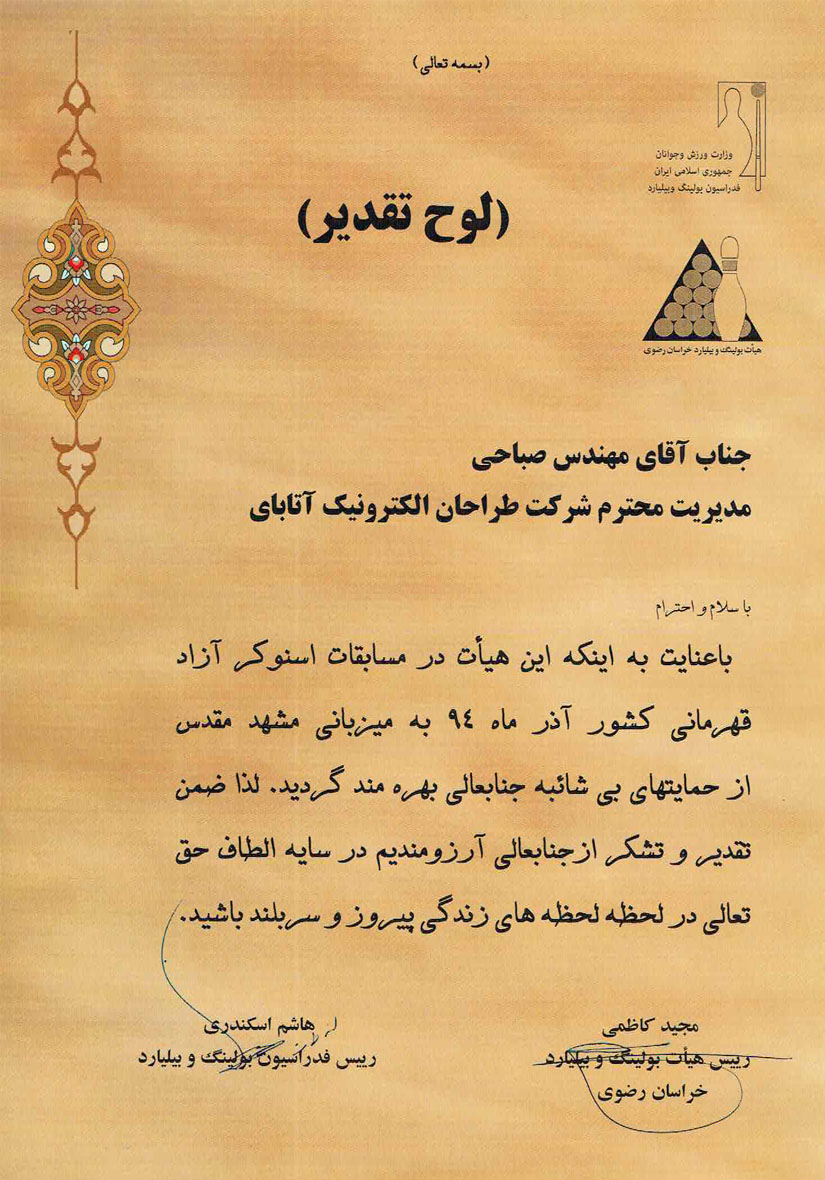 (بسمه تعالی)
وزارت ورزش وجوانان
جمهوری اسلامی ایران
فدراسیون بولینگ وبیلیارد
(لوح تقدیر)
هیأت بولینگ و بیلیارد خراسان رضوی
جناب آقای مهندس صباحی
مدیریت محترم شرکت طراحان الکترونیک آتابای
با سلام و احترام
باعنایت به اینکه این هیأت در مسابقات اسنوکر آزاد
قهرمانی کشور آذر ماه ٩٤ به میزبانی مشهد مقدس
از حمایتهای بی شائبه جنابعالی بهره مند گردید. لذا ضمن
تقدیر و تشکر ازجنابعالی آرزومندیم در سایه الطاف حق
تعالی در لحظه لحظه های زندگی پیروز و سربلند باشید.
مجید کاظمی
رییس هیأت بولینگ و بیلیارد
خراسان رضوی
هاشم اسکندری
رییس فدراسیون بولینگ و بیلیارد